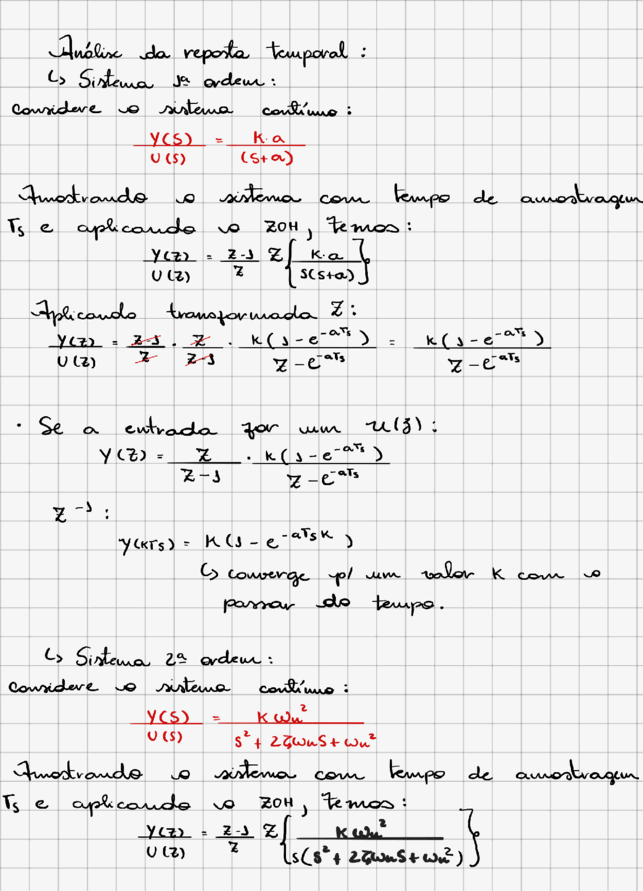 Análise da reposta temporal :
↳ Sistema 1ª ordem :
considere o sistema contínuo :
Y(S)/U(S) = K.a/(S+a)
Amostrando o sistema com tempo de amostragem
Ts e aplicando o ZOH, temos :
Y(Z)/U(Z) = Z-1/Z Z{K.a/S(S+a)}
Aplicando transformada Z :
Y(Z)/U(Z) = Z-1/Z . Z/Z-1 . K(1-e^-aTs)/Z-e^-aTs = K(1-e^-aTs)/Z-e^-aTs
· Se a entrada for um u(z) :
Y(Z) = Z/Z-1 . K(1-e^-aTs)/Z-e^-aTs
Z^-1 :
Y(KTs) = K(1-e^-aTsK)
↳ converge p/ um valor K com o
passar do tempo.
↳ Sistema 2ª ordem :
considere o sistema contínuo :
Y(S)/U(S) = Kωn²/S²+2ζωnS+ωn²
Amostrando o sistema com tempo de amostragem
Ts e aplicando o ZOH, temos :
Y(Z)/U(Z) = Z-1/Z Z{Kωn²/S(S²+2ζωnS+ωn²)}